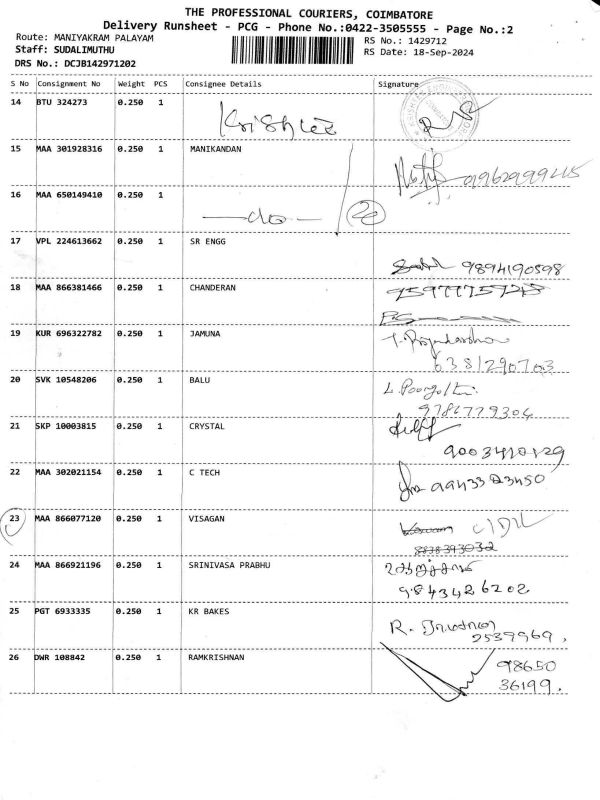 THE PROFESSIONAL COURIERS, COIMBATORE
Delivery Runsheet - PCG - Phone No.:0422-3505555 - Page No.:2
Route: MANIYAKRAM PALAYAM
RS No.: 1429712
Staff: SUDALIMUTHU
RS Date: 18-Sep-2024
DRS No.: DCJB142971202
S No Consignment No Weight PCS Consignee Details Signature
14 BTU 324273 0.250 1
15 MAA 301928316 0.250 1 MANIKANDAN
16 MAA 650149410 0.250 1
—do—
17 VPL 224613662 0.250 1 SR ENGG
9894190598
18 MAA 866381466 0.250 1 CHANDERAN
19 KUR 696322782 0.250 1 JAMUNA
6381290703
20 SVK 10548206 0.250 1 BALU
9786779304
21 SKP 10003815 0.250 1 CRYSTAL
22 MAA 302021154 0.250 1 C TECH
23 MAA 866077120 0.250 1 VISAGAN
24 MAA 866921196 0.250 1 SRINIVASA PRABHU
9843426202.
25 PGT 6933335 0.250 1 KR BAKES
R.
2539969.
26 DWR 108842 0.250 1 RAMKRISHNAN
98650
36199.